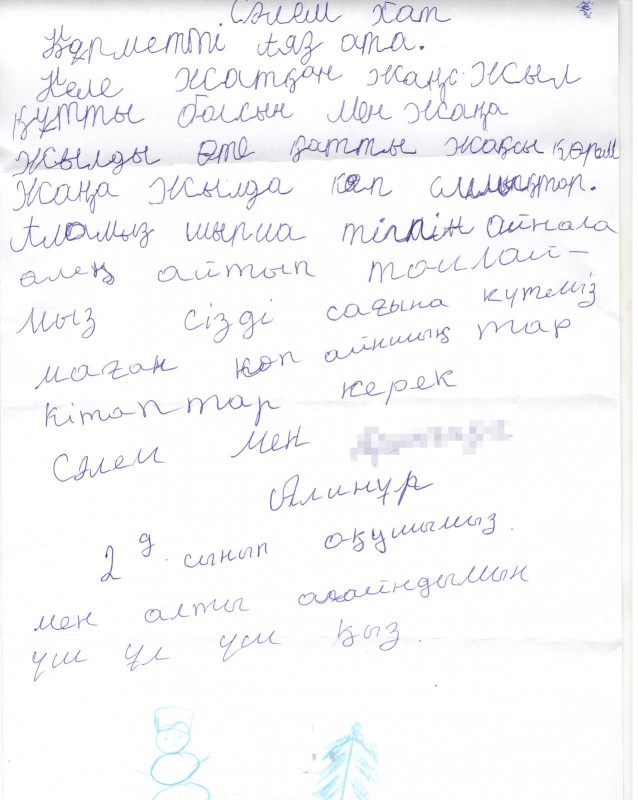 Сәлем хат
Құрметті Аяз ата.
Келе жатқан жаңа жыл
құтты болсын мен жаңа
жылды өте қатты жақсы көрем
жаңа жылда көп сыйлықтар.
Аламыз шырша айнала
өлең айтып тойлай-
мыз сізді сағына күтеміз
маған көп ойыншық тар
кітап тар керек
Сәлем мен
Алинұр
2 д. сынып оқушымыз.
мен алты ағайындымын
үш ұл үш қыз.